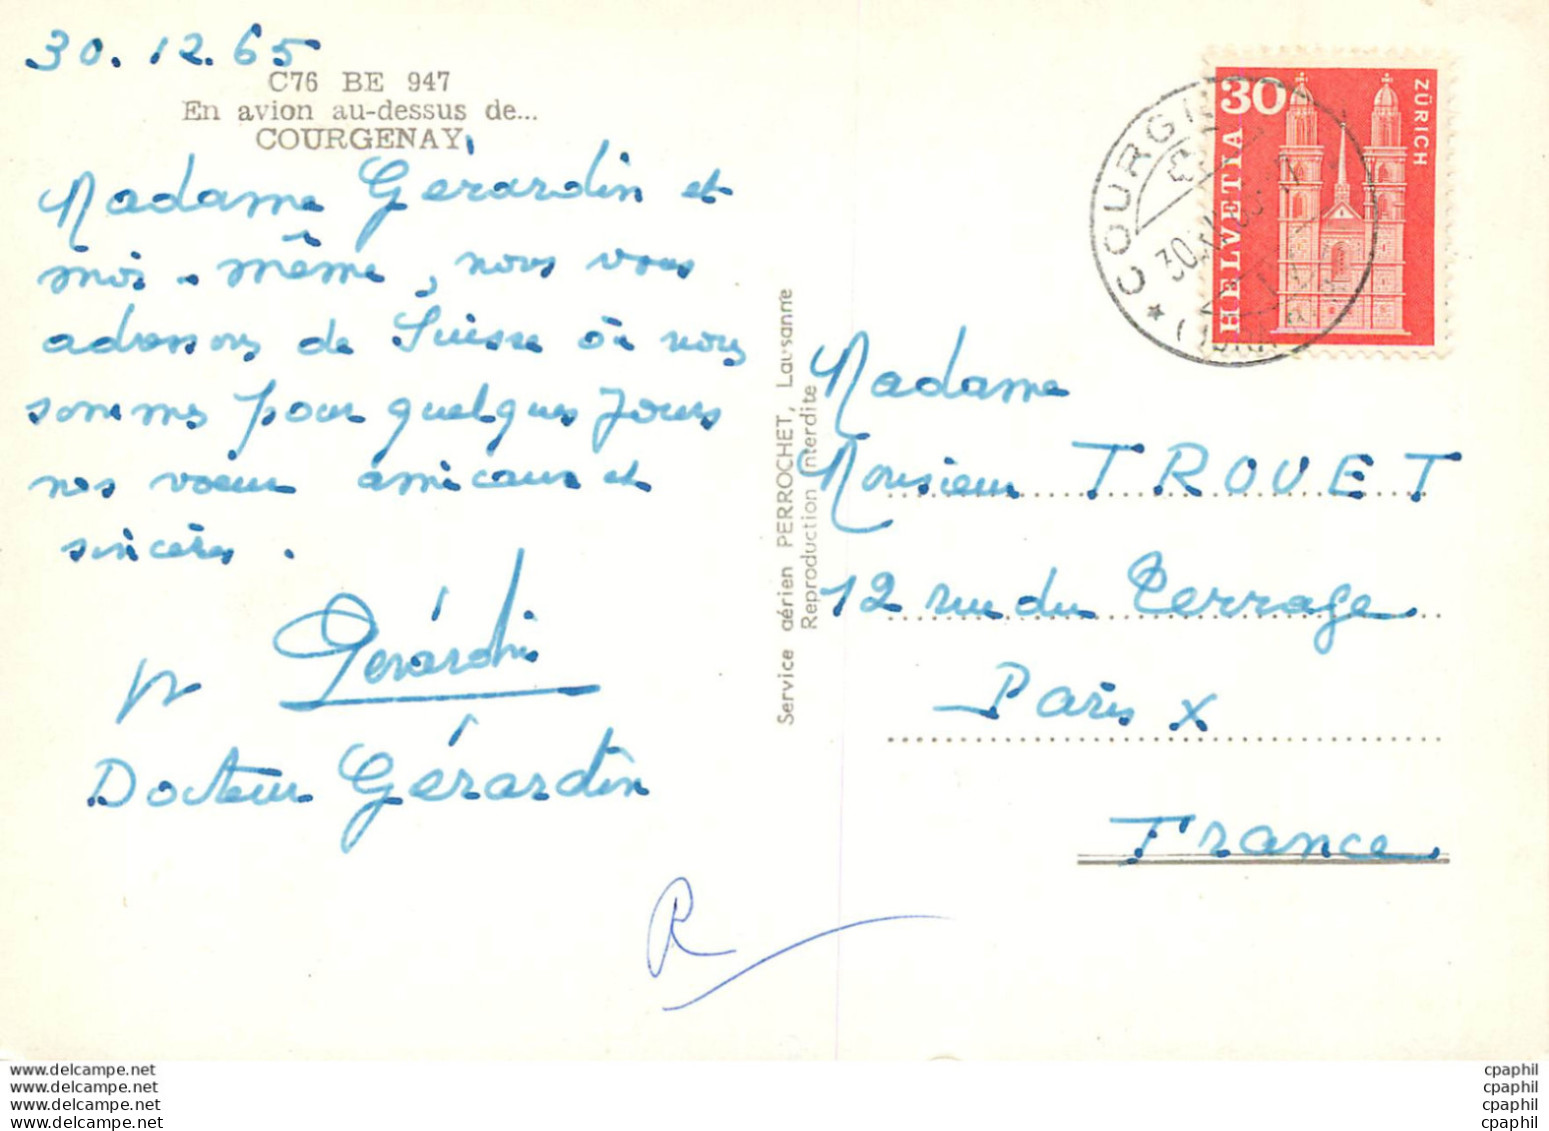 30.12.65
C76 BE 947
En avion au-dessus de...
COURGENAY
Madame Gérardin et
moi-même, nous vous
adressons de Suisse où nous
sommes pour quelques jours
nos vœux amicaux et
sincères.
Gérardin
Docteur Gérardin
R
Service aérien PERROCHET, Lausanne
Reproduction interdite
30
HELVETIA
ZÜRICH
COURGE
30.XII.65
Madame
Monsieur TROUET
12 rue du Terrage
Paris X
France
www.delcampe.net
www.delcampe.net
www.delcampe.net
www.delcampe.net
cpaphil
cpaphil
cpaphil
cpaphil